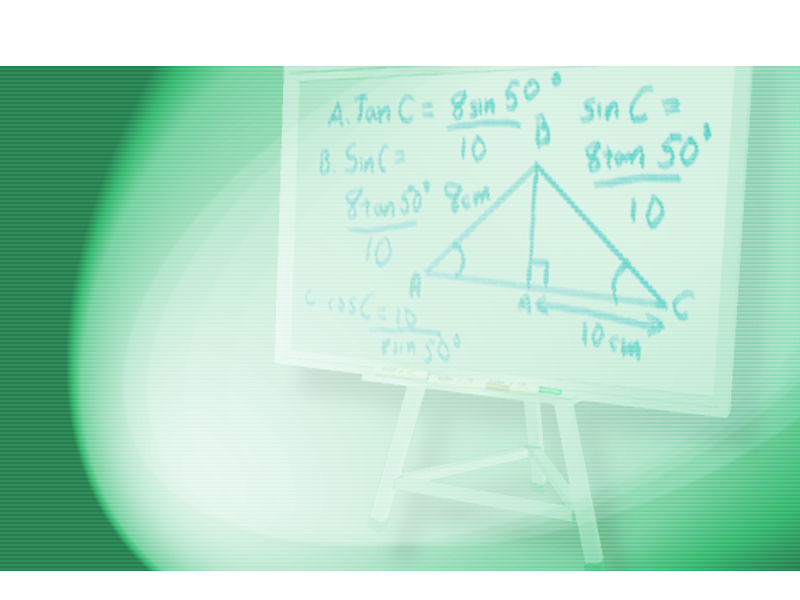 A. Tan C = 8 sin 50°
10
B. Sin C =
8 tan 50°
10
C. cos C = 10
8 sin 50°
sin C =
8 tan 50°
10
B
8cm
A
A
C
10 cm